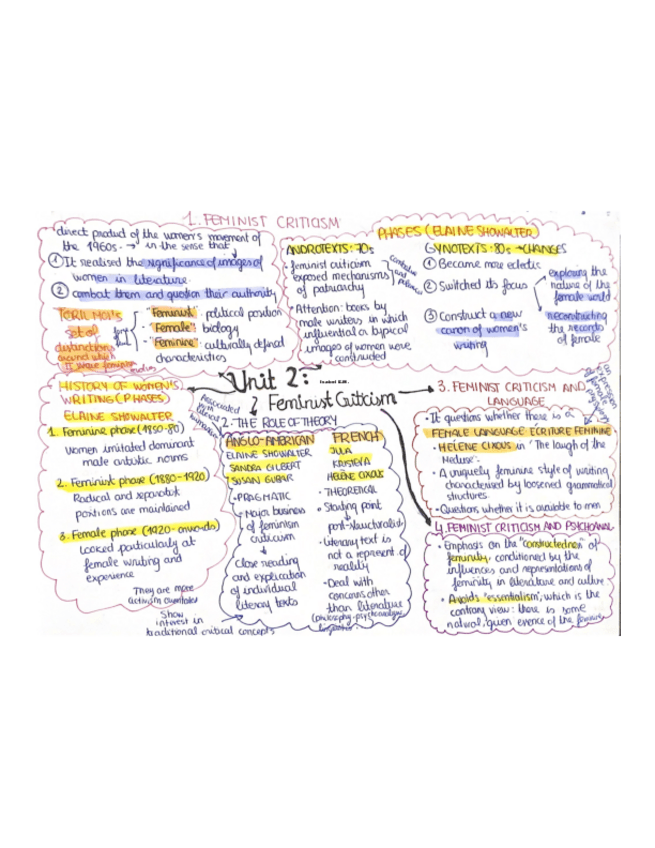 1. FEMINIST CRITICISM
direct product of the women's movement of
the 1960s. → in the sense that
① It realised the significance of images of
women in literature
② combat them and question their authority
TORIL MOI'S
set of
distinctions
around which
II wave feminist
"Feminist": political position
"Female": biology
"Feminine": culturally defined
characteristics
PHASES (ELAINE SHOWALTER)
ANDROTEXTS: 70s
· feminist criticism
exposed mechanisms
of patriarchy
· Attention: books by
male writers in which
influential or typical
images of women were
constructed
GYNOTEXTS: 80s → CHANGES
① Became more eclectic
② Switched its focus
③ Construct a new
canon of women's
writing
exploring the
nature of the
female world
reconstructing
the records
of female
Unit 2:
Feminist Criticism
HISTORY OF WOMEN'S
WRITING (PHASES)
ELAINE SHOWALTER
1. Feminine phase (1850-80)
Women imitated dominant
male artistic norms
2. Feminist phase (1880-1920)
Radical and separatist
positions are maintained
3. Female phase (1920-onwards)
Looked particularly at
female writing and
experience
They are more
Show
interest in
traditional critical concepts
2. THE ROLE OF THEORY
Associated
ANGLO-AMERICAN
ELAINE SHOWALTER
SANDRA GILBERT
SUSAN GUBAR
· PRAGMATIC
· Major business
of feminism
criticism
close reading
and explication
of individual
literary texts
FRENCH
JULIA
KRISTEVA
HELENE CIXOUS
· THEORETICAL
· Starting point
post-structuralist
· Literary text is
not a represent of
reality
· Deal with
concerns other
than literature
(philosophy, psychoanalysis
linguistics
3. FEMINIST CRITICISM AND
LANGUAGE
· It questions whether there is a
FEMALE LANGUAGE ECRITURE FEMININE
· HELENE CIXOUS in 'The laugh of the
Meduse'.
· A uniquely feminine style of writing
characterised by loosened grammatical
structures.
· Questions whether it is available to men
4. FEMINIST CRITICISM AND PSYCHOANAL
· Emphasis on the "constructednen" of
feminity. conditioned by the
influences and representations of
feminity in literature and culture
· Avoids "essentialism", which is the
contrary view: there is some
natural, given